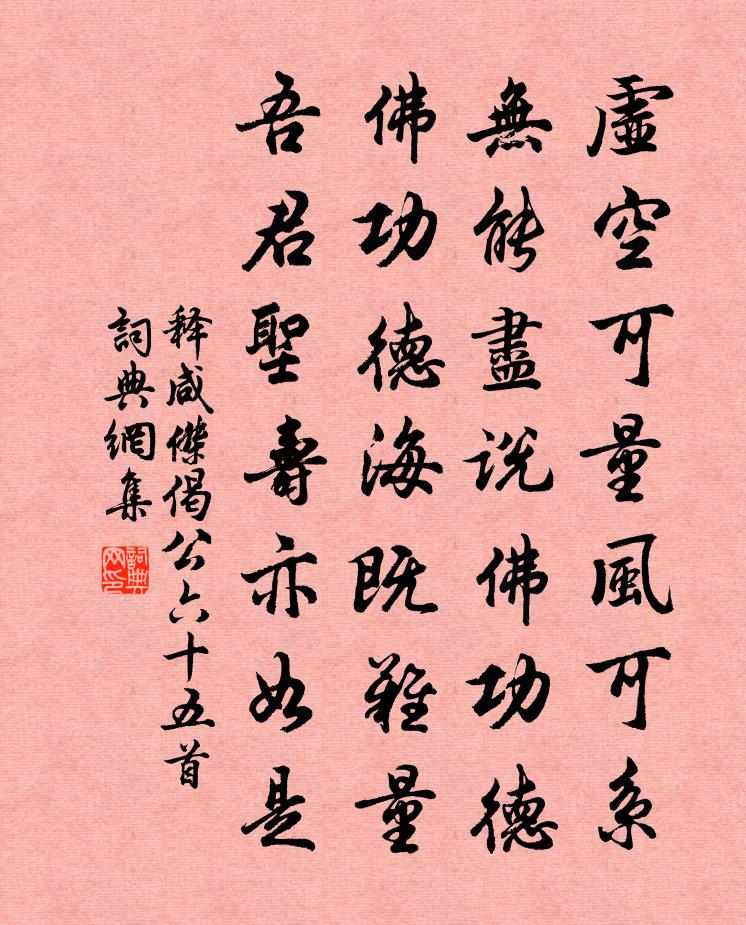 虛空可量風可系
無能盡說佛功德
佛功德海既難量
吾君聖壽亦如是
释咸傑偈公六十五首
詞典網集
詞典网印